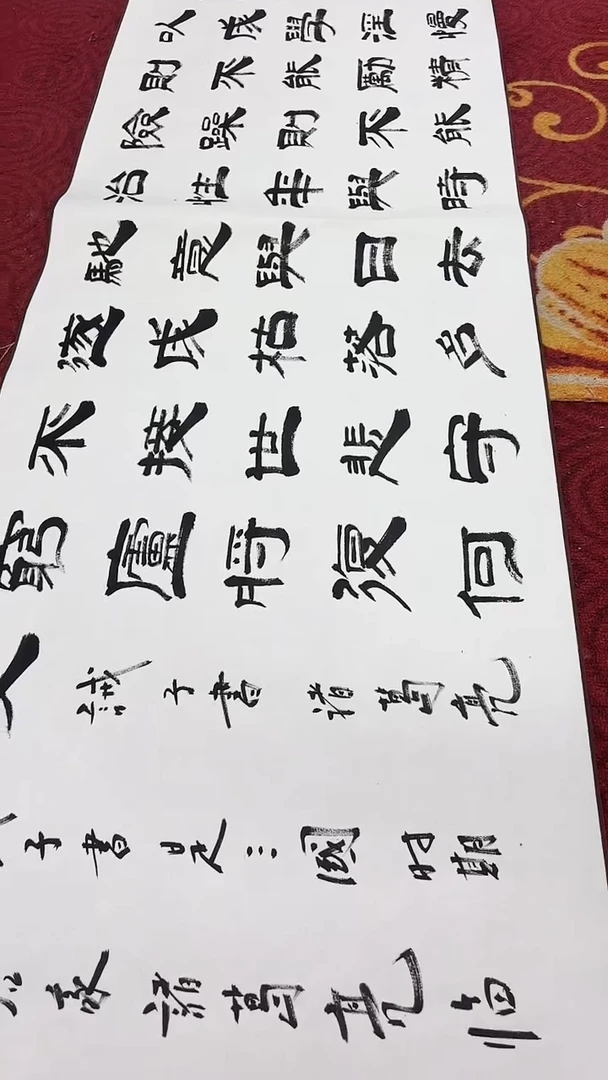 以成學淫慢
則不能勵精
險躁則不能
治性年與時
馳意與日去
遂成枯落多
不接世悲守
窮廬將復何
誡子書諸葛亮
子書是三國时期
家諸葛亮临